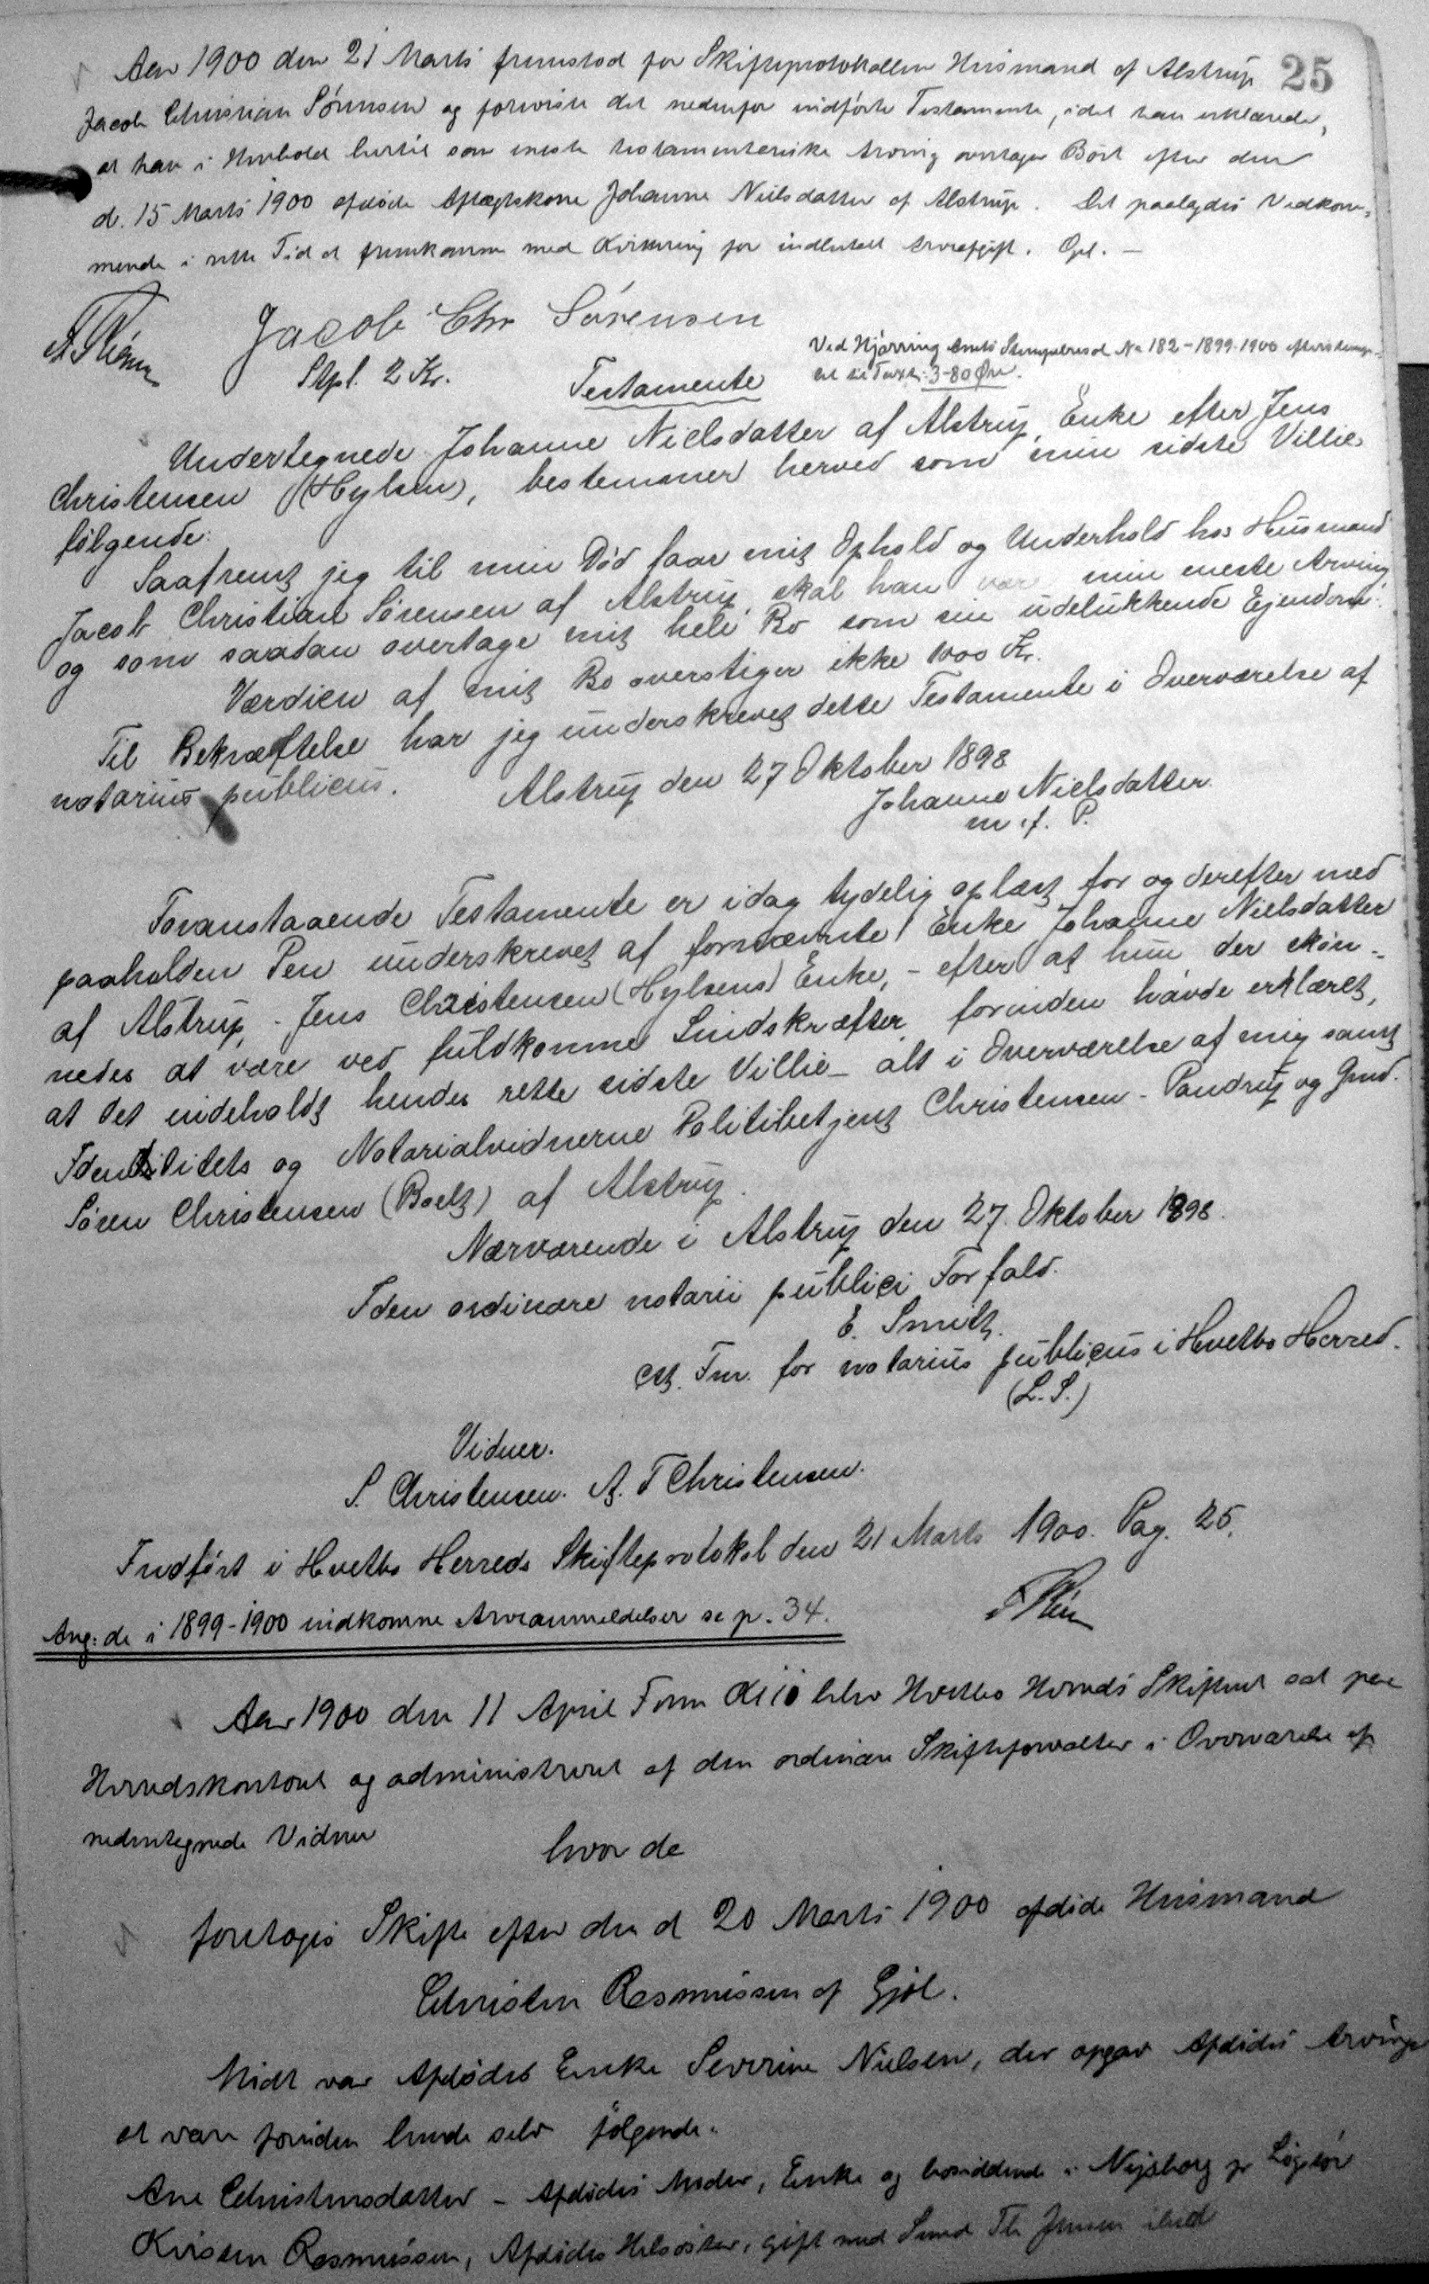 25
Aar 1900 den 21 Marts fremstod for Skifteprotokollen Husmand af Alstrup
Jacob Christian Sørensen og foreviste det nedenfor indførte Testamente, idet han erklærede,
at han i Henhold hertil som eneste testamentariske Arving overtager Boet efter den
d. 15 Marts 1900 afdøde Aftægtskone Johanne Nielsdatter af Alstrup. Det paalagdes Vedkom-
mende i rette Tid at fremkomme med Kvittering for indbetalt Arveafgift. Opl. —
Jacob Chr Sørensen
Stpl. 2 Kr.
Ved Hjørring Amts Stempelresol. No 182-1899-1900 efterstemp-
let til Taxt: 3-80 Øre.
Testamente
Undertegnede Johanne Nielsdatter af Alstrup, Enke efter Jens
Christensen (Hylsen), bestemmer herved som min sidste Villie
følgende:
Saafremt jeg til min Død faar mit Ophold og Underhold hos Husmand
Jacob Christian Sørensen af Alstrup, skal han være min eneste Arving
og som saadan overtage mit hele Bo som sin udelukkende Ejendom.
Værdien af mit Bo overstiger ikke 1000 Kr.
Til Bekræftelse har jeg underskrevet dette Testamente i Overværelse af
notarius publicus.
Alstrup den 27 Oktober 1898
Johanne Nielsdatter
m. f. P.
Foranstaaende Testamente er idag tydelig oplæst for og derefter med
paaholden Pen underskrevet af fornævnte Enke Johanne Nielsdatter
af Alstrup, - Jens Christensen (Hylsens) Enke, - efter at hun der skøn-
nedes at være ved fuldkomne Sindskræfter, forinden havde erklæret,
at det indeholdt hendes rette sidste Villie - alt i Overværelse af mig samt
Identitets og Notarialvidnerne Politibetjent Christensen - Pandrup og Gmd.
Søren Christensen (Boelt) af Alstrup.
Nærværende i Alstrup den 27. Oktober 1898.
I den ordinære notarii publici Forfald.
E. Smith.
cst. Fm. for notarius publicus i Hvetbo Herred.
(L. S.)
Vidner.
S. Christensen. A. T Christensen.
Indført i Hvetbo Herreds Skifteprotokol den 21 Marts 1900. Pag. 25.
Ang: de i 1899-1900 indkomne Arveanmeldelser se p. 34.
Aar 1900 den 11 April Form Kl 10 blev Hvetbo Herreds Skifteret sat paa
Herredskontoret og administreret af den ordinære Skifteforvalter i Overværelse af
nedentegnede Vidner
hvor da
foretoges Skifte efter den d 20 Marts 1900 afdøde Husmand
Christen Rasmussen af Gjøl.
Mødt var Afdødes Enke Severine Nielsen, der opgav Afdødes Arvinger
at være foruden hende selv følgende:
Ane Christensdatter - Afdødes Moder, Enke og boesiddende i Nysborg pr Løgstør
Kirsten Rasmussen, Afdødes Helsøster, gift med Smed Th Jensen ibid